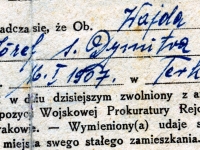 adcza się, że Ob. Wajda
Józef s. Dymitra
6. I 1907. w Terk
w dniu dzisiejszym zwolniony z ar
pozycji Wojskowej Prokuratury Rejo
akowie. — Wymieniony(a) udaje s
miejsca swego stałego zamieszkania.